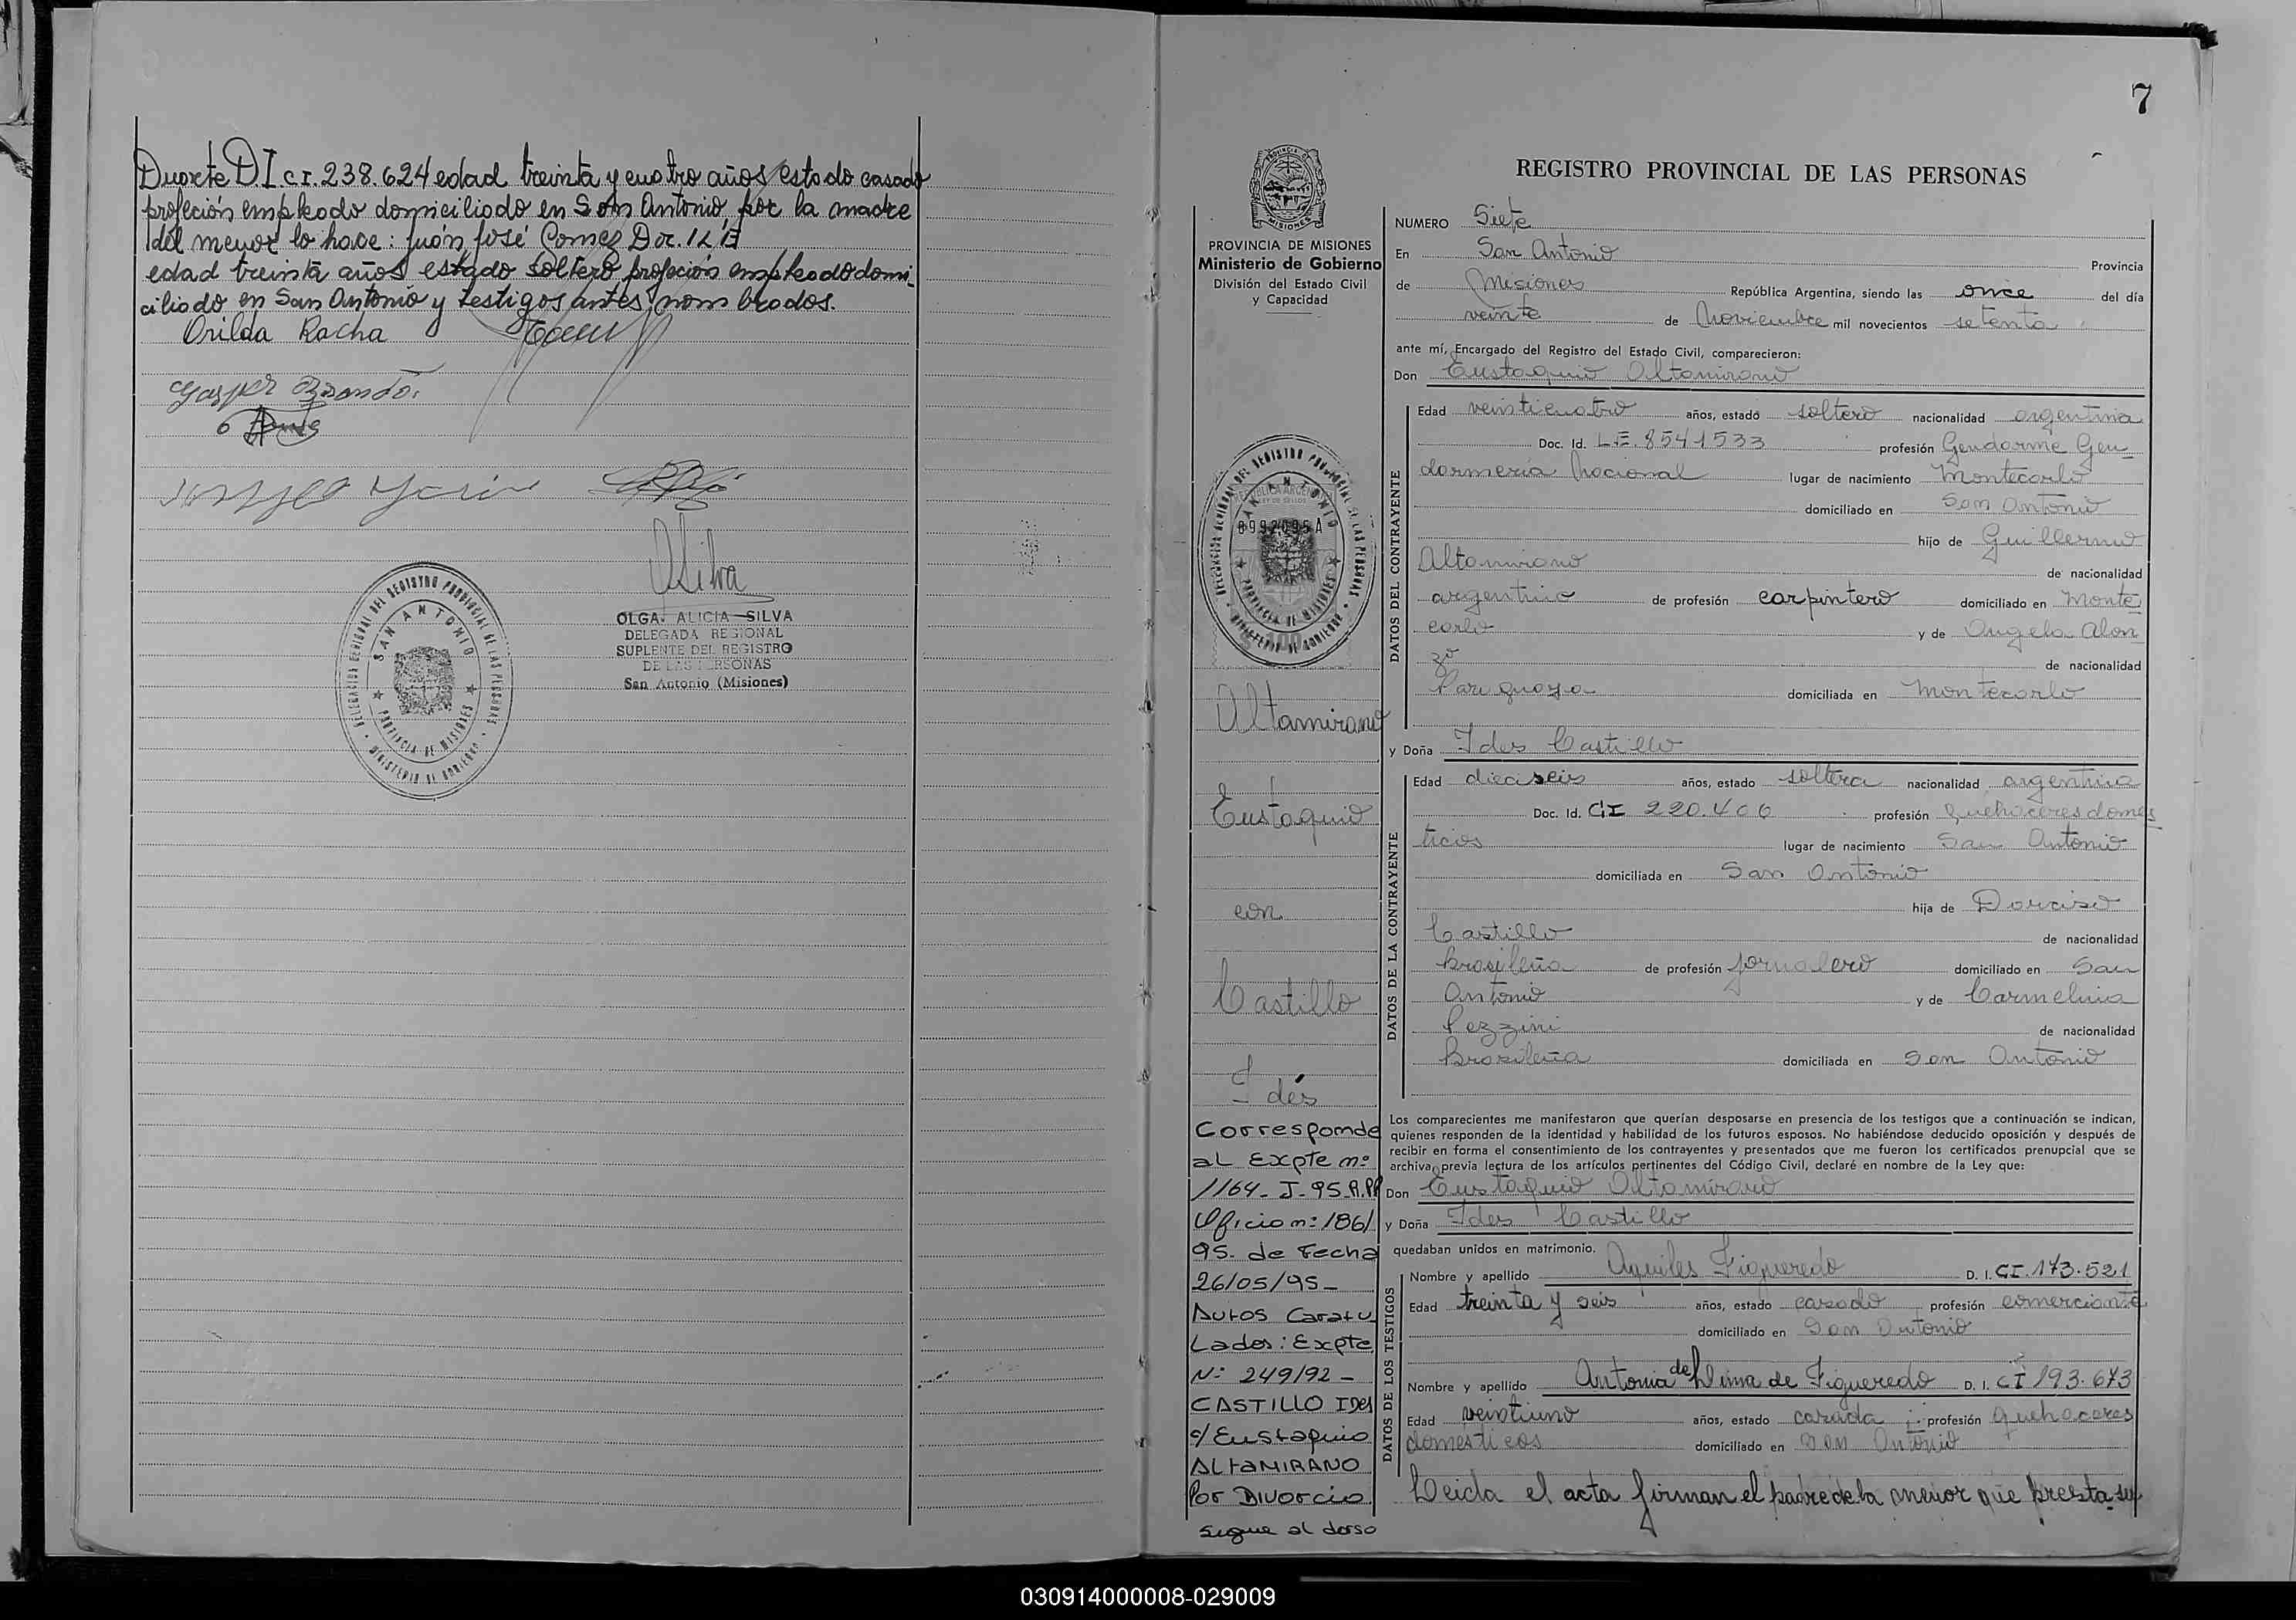 Duarte D I. c I. 238.624 edad treinta y cuatro años estado casado
profeción empleado domiciliado en San Antonio, por la madre
del menor lo hace: Juán José Gomez Doc.
edad treinta años estado soltero profeción empleado domi-
ciliado en San Antonio y testigos antes nombrados.
Orilda Rocha
Gasper
Silva
OLGA ALICIA SILVA
DELEGADA REGIONAL
SUPLENTE DEL REGISTRO
DE LAS PERSONAS
San Antonio (Misiones)
DELEGACION REGIONAL DEL REGISTRO PROVINCIAL DE LAS PERSONAS
SAN ANTONIO
PROVINCIA DE MISIONES
MINISTERIO DE GOBIERNO
7
PROVINCIA DE MISIONES
PROVINCIA DE MISIONES
Ministerio de Gobierno
División del Estado Civil
y Capacidad
REGISTRO PROVINCIAL DE LAS PERSONAS
NUMERO Siete
En San Antonio Provincia
de Misiones República Argentina, siendo las once del día
veinte de Noviembre mil novecientos setenta
ante mí, Encargado del Registro del Estado Civil, comparecieron:
Don Eustaquio Altamirano
DATOS DEL CONTRAYENTE
Edad veinticuatro años, estado soltero nacionalidad argentina
Doc. Id. L.E. 8541533 profesión Gendarme Gen-
darmeria Nacional lugar de nacimiento Montecarlo
domiciliado en San Antonio
hijo de Guillermo
Altamirano de nacionalidad
argentino de profesión carpintero domiciliado en Monte
carlo y de Angela Alon
zo de nacionalidad
Paraguaya domiciliada en Montecarlo
y Doña Ides Castillo
DATOS DE LA CONTRAYENTE
Edad dieciseis años, estado soltera nacionalidad argentina
Doc. Id. CI 220.406 profesión Quehaceres domes
ticos lugar de nacimiento San Antonio
domiciliada en San Antonio
hija de Darciso
Castillo de nacionalidad
brasileña de profesión jornalero domiciliado en San
Antonio y de Carmelina
Pezzini de nacionalidad
Brasileña domiciliada en San Antonio
Los comparecientes me manifestaron que querían desposarse en presencia de los testigos que a continuación se indican,
quienes responden de la identidad y habilidad de los futuros esposos. No habiéndose deducido oposición y después de
recibir en forma el consentimiento de los contrayentes y presentados que me fueron los certificados prenupcial que se
archiva, previa lectura de los artículos pertinentes del Código Civil, declaré en nombre de la Ley que:
Don Eustaquio Altamirano
y Doña Ides Castillo
quedaban unidos en matrimonio.
DATOS DE LOS TESTIGOS
Nombre y apellido Aquiles Figueredo D. I. CI. 173.521
Edad treinta y seis años, estado casado profesión comerciante
domiciliado en San Antonio
Nombre y apellido Antonia de Lima de Figueredo D. I. CI 193.673
Edad veintiuno años, estado casada profesión quehaceres
domesticos domiciliado en San Antonio
Leida el acta firman el padre de la menor que presta su
DELEGACION REGIONAL DEL REGISTRO PROVINCIAL DE LAS PERSONAS
SAN ANTONIO
8992095A
PROVINCIA DE MISIONES
MINISTERIO DE GOBIERNO
Altamirano
Eustaquio
con
Castillo
Idés
Corresponde
al Expte nº
1164-J-95
Oficio nº 186/
95. de Fecha
26/05/95-
Autos Caratu
Lados: Expte
Nº 249/92-
CASTILLO Ides
c/ Eustaquio
ALtaMIRANO
Por Divorcio
sigue al dorso
030914000008-029009